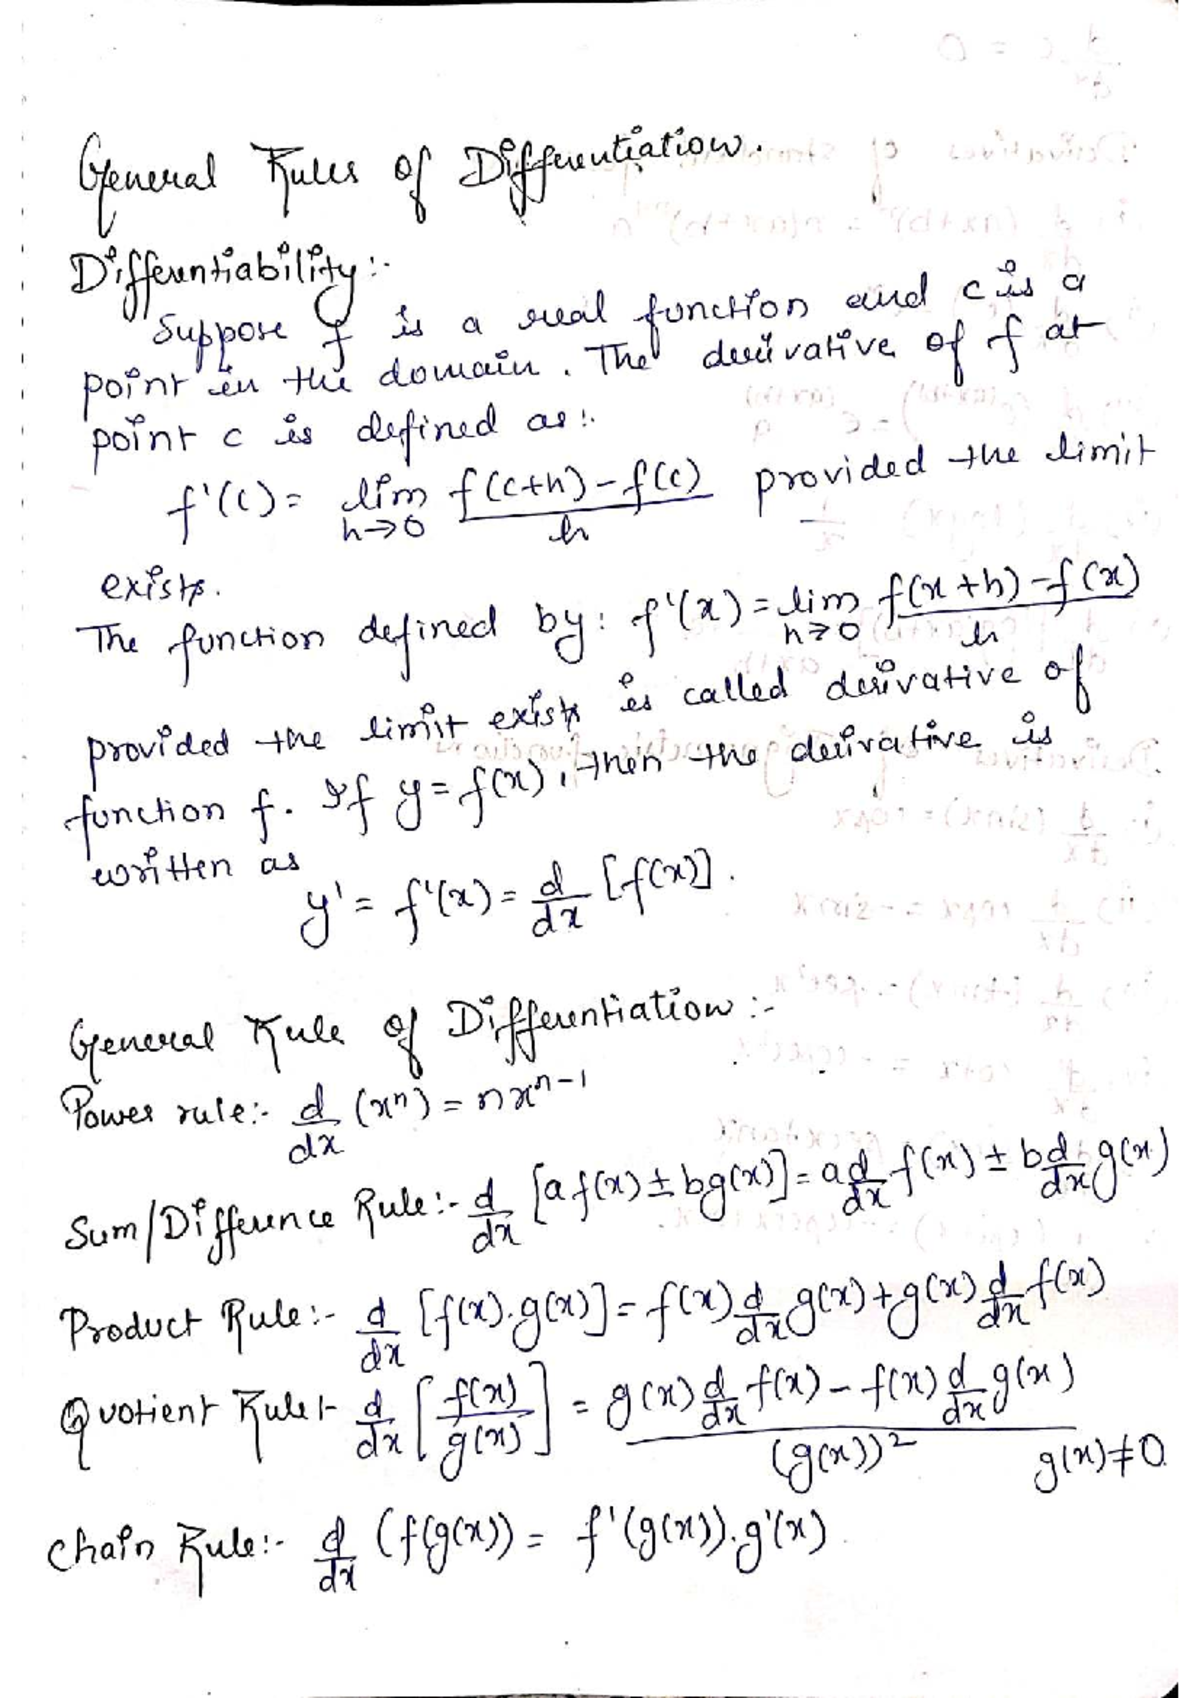 General Rules of Differentiation.
Differentiability:-
Suppose f is a real function and c is a
point in the domain. The derivative of f at
point c is defined as:-
f'(c) = lim h→0 f(c+h) - f(c) / h provided the limit
exists.
The function defined by: f'(x) = lim h→0 f(x+h) - f(x) / h
provided the limit exists is called derivative of
function f. If y = f(x), then the derivative is
written as
y' = f'(x) = d/dx [f(x)].
General Rule of Differentiation:-
Power rule:- d/dx (xⁿ) = nxⁿ⁻¹
Sum/Difference Rule:- d/dx [af(x) ± bg(x)] = a d/dx f(x) ± b d/dx g(x)
Product Rule:- d/dx [f(x).g(x)] = f(x) d/dx g(x) + g(x) d/dx f(x)
Quotient Rule:- d/dx [f(x)/g(x)] = g(x) d/dx f(x) - f(x) d/dx g(x) / (g(x))² g(x)≠0
Chain Rule:- d/dx (f(g(x)) = f'(g(x)).g'(x)